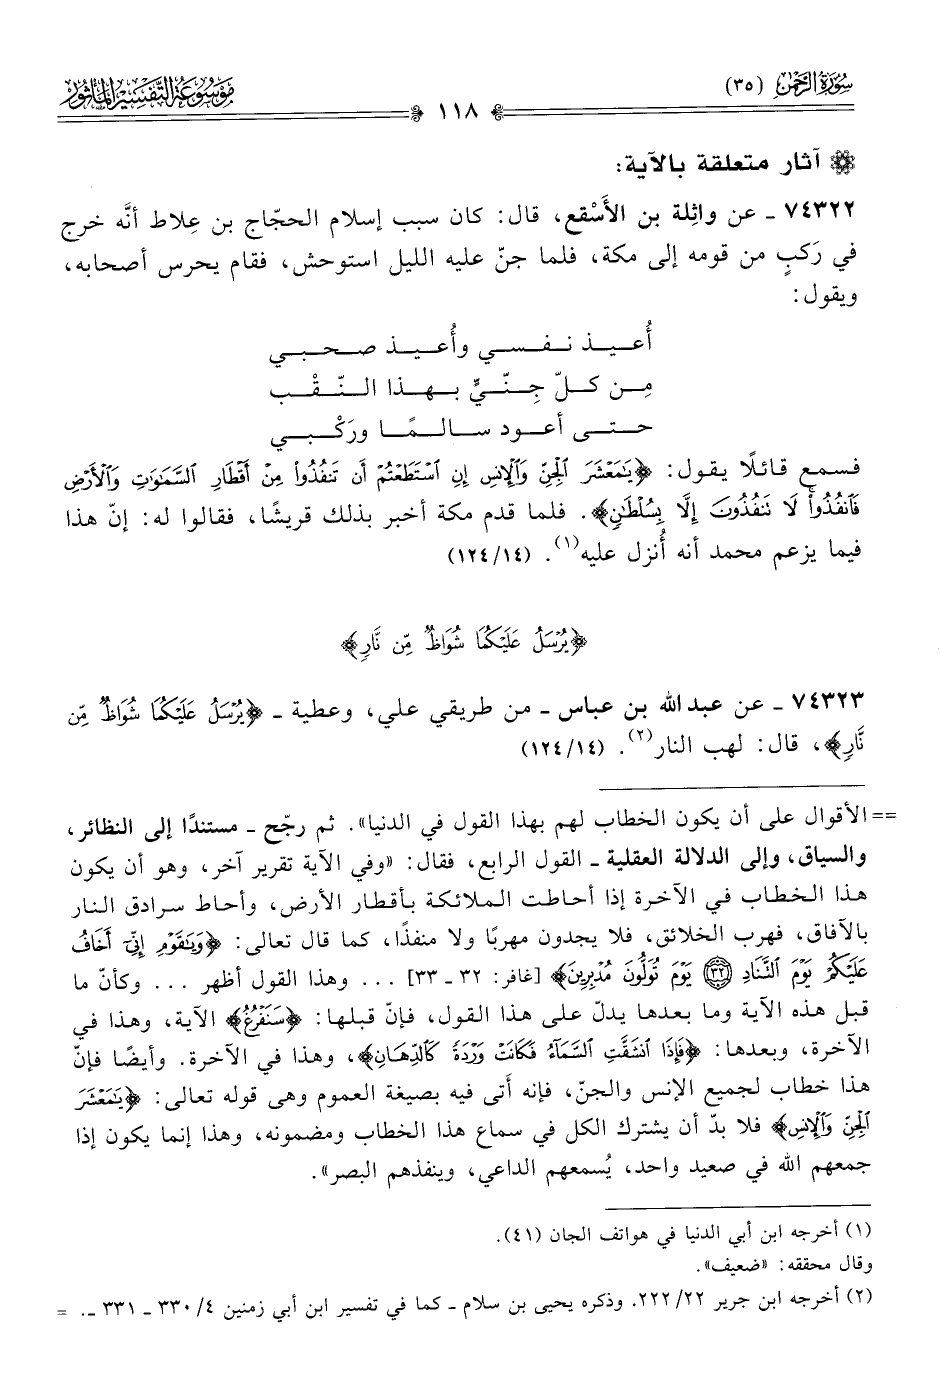 سُورَةُ الرَّحْمَن (٣٥)
١١٨
مَوْسُوعَة التَّفْسِير المَأْثُور
آثار متعلقة بالآية:
٧٤٣٢٢ ـ عن واثِلة بن الأَسْقع، قال: كان سبب إسلام الحجّاج بن عِلاط أنَّه خرج
في رَكبٍ من قومه إلى مكة، فلما جنّ عليه الليل استوحش، فقام يحرس أصحابه،
ويقول:
أُعـيـذ نـفـسـي وأُعـيـذ صـحـبـي
مِـن كـلّ جِـنّـيٍّ بـهـذا الـنّـقْـب
حـتـى أعـود سـالـمًـا ورَكْـبـي
فسمع قائلًا يقول: ﴿يَٰمَعْشَرَ ٱلْجِنِّ وَٱلْإِنسِ إِنِ ٱسْتَطَعْتُمْ أَن تَنفُذُواْ مِنْ أَقْطَارِ ٱلسَّمَٰوَٰتِ وَٱلْأَرْضِ
فَٱنفُذُواْۚ لَا تَنفُذُونَ إِلَّا بِسُلْطَٰنٍ﴾. فلما قدم مكة أخبر بذلك قريشًا، فقالوا له: إنّ هذا
فيما يزعم محمد أنه أُنزل عليه(١). (١٢٤/١٤)
﴿يُرْسَلُ عَلَيْكُمَا شُوَاظٌ مِّن نَّارٍ﴾
٧٤٣٢٣ ـ عن عبد الله بن عباس ـ من طريقي علي، وعطية ـ ﴿يُرْسَلُ عَلَيْكُمَا شُوَاظٌ مِّن
نَّارٍ﴾، قال: لهب النار(٢). (١٢٤/١٤)
== الأقوال على أن يكون الخطاب لهم بهذا القول في الدنيا». ثم رجّح ـ مستندًا إلى النظائر،
والسياق، وإلى الدلالة العقلية ـ القول الرابع، فقال: «وفي الآية تقرير آخر، وهو أن يكون
هذا الخطاب في الآخرة إذا أحاطت الملائكة بأقطار الأرض، وأحاط سرادق النار
بالآفاق، فهرب الخلائق، فلا يجدون مهربًا ولا منفذًا، كما قال تعالى: ﴿وَيَٰقَوْمِ إِنِّيٓ أَخَافُ
عَلَيْكُمْ يَوْمَ ٱلتَّنَادِ ٣٢ يَوْمَ تُوَلُّونَ مُدْبِرِينَ﴾ [غافر: ٣٢ ـ ٣٣] ... وهذا القول أظهر ... وكأنّ ما
قبل هذه الآية وما بعدها يدلّ على هذا القول، فإنّ قبلها: ﴿سَنَفْرُغُ﴾ الآية، وهذا في
الآخرة، وبعدها: ﴿فَإِذَا ٱنشَقَّتِ ٱلسَّمَآءُ فَكَانَتْ وَرْدَةً كَٱلدِّهَانِ﴾، وهذا في الآخرة. وأيضًا فإنّ
هذا خطاب لجميع الإنس والجنّ، فإنه أتى فيه بصيغة العموم وهى قوله تعالى: ﴿يَٰمَعْشَرَ
ٱلْجِنِّ وَٱلْإِنسِ﴾ فلا بدّ أن يشترك الكل في سماع هذا الخطاب ومضمونه، وهذا إنما يكون إذا
جمعهم الله في صعيد واحد، يُسمعهم الداعي، وينفذهم البصر».
(١) أخرجه ابن أبي الدنيا في هواتف الجان (٤١).
وقال محققه: «ضعيف».
(٢) أخرجه ابن جرير ٢٢/ ٢٢٢. وذكره يحيى بن سلام ـ كما في تفسير ابن أبي زمنين ٤/ ٣٣٠ ـ ٣٣١ ـ. =